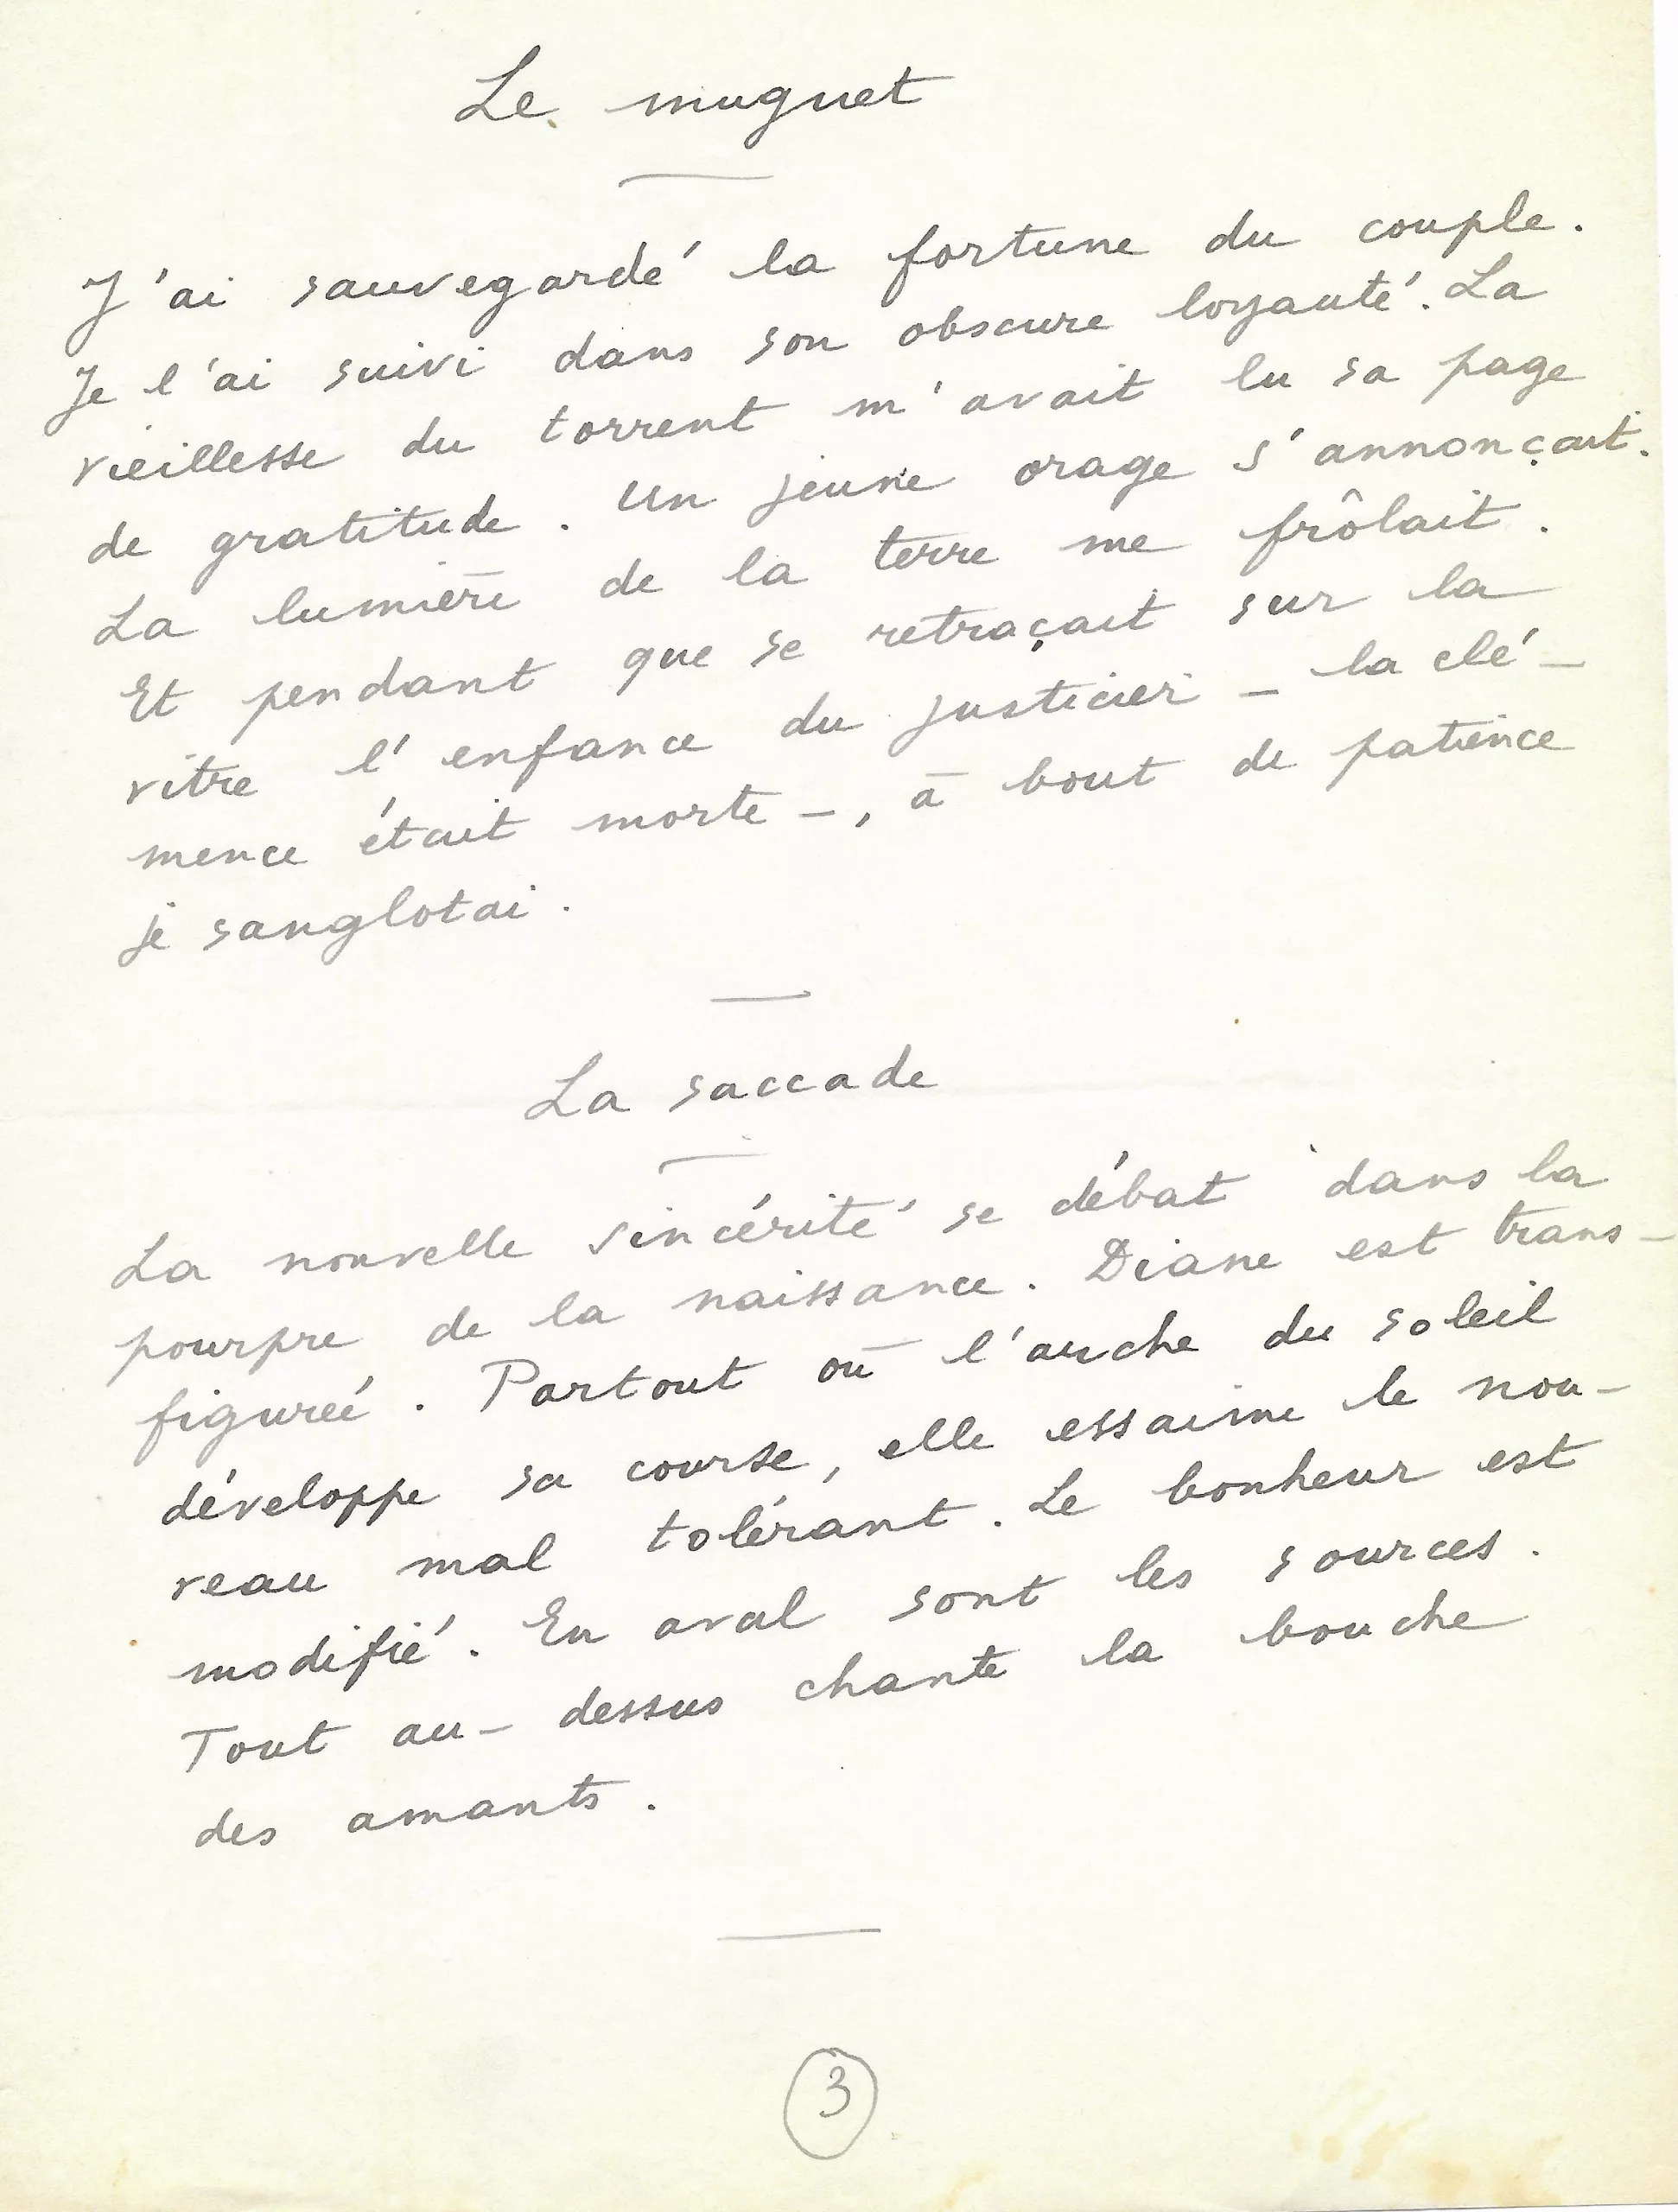 Le muguet
J'ai sauvegardé la fortune du couple.
Je l'ai suivi dans son obscure loyauté. La
vieillesse du torrent m'avait lu sa page
de gratitude. Un jeune orage s'annonçait.
La lumière de la terre me frôlait.
Et pendant que se retraçait sur la
vitre l'enfance du justicier – la clé-
mence était morte –, à bout de patience
je sanglotai.
La saccade
La nouvelle sincérité se débat dans la
pourpre de la naissance. Diane est trans-
figurée. Partout où l'arche du soleil
développe sa course, elle essaime le nou-
veau mal tolérant. Le bonheur est
modifié. En aval sont les sources.
Tout au-dessus chante la bouche
des amants.
3